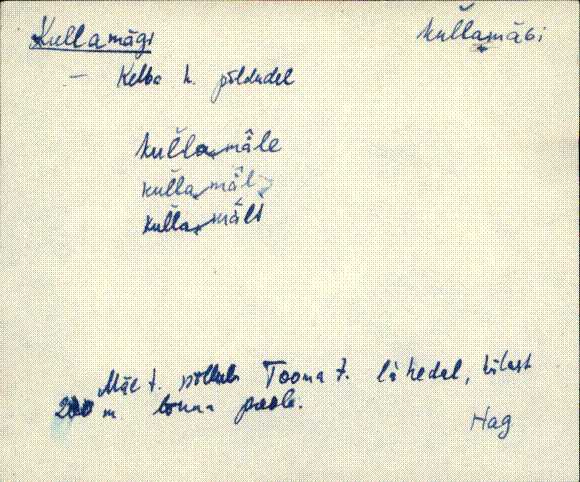 Kullamägi kullamäGi
— Kelba k. põldudel
kullamäle
kullamäl
kullamält
Mäe t. põllul Tooma t. lähedal, külast
200 m louna poole.
Hag